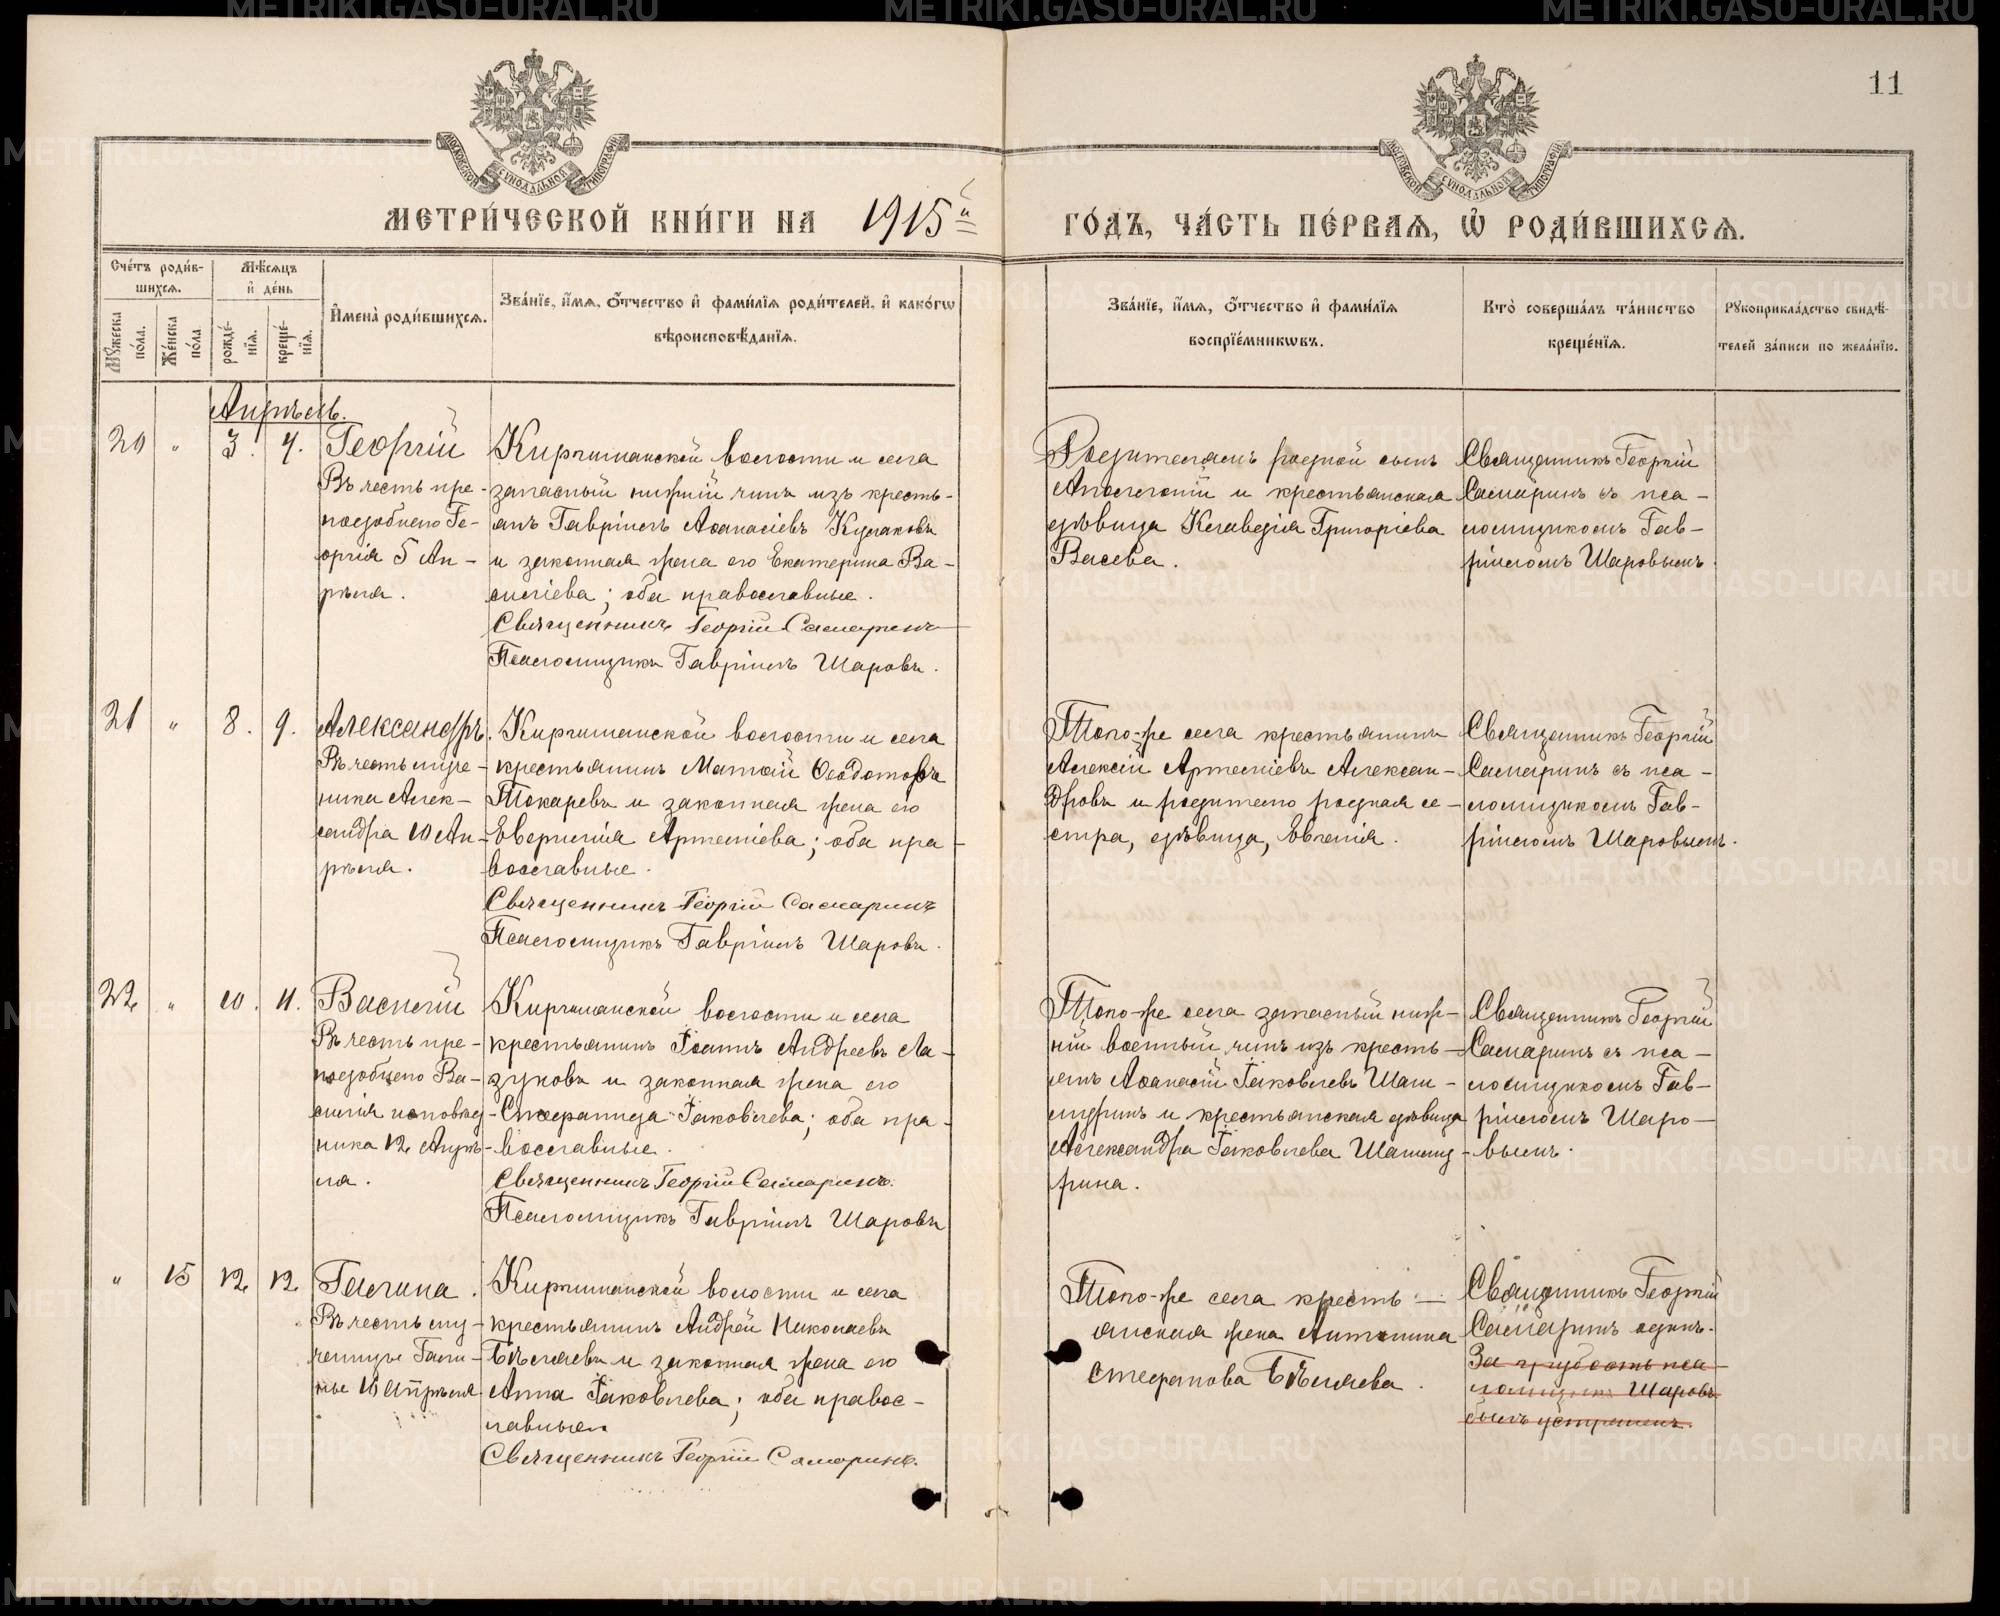 11
МОСКОВСКОЙ СУНОДАЛЬНОЙ ТИПОГРАФІИ
МОСКОВСКОЙ СУНОДАЛЬНОЙ ТИПОГРАФІИ
МЕТРИ́ЧЕСКОЙ КНИ́ГИ НА 1915й
ГО́ДЪ, ЧА́СТЬ ПЕ́РВАѦ, Ѡ҆ РОДИ́ВШИХСѦ.
Сче́тъ роди́в-
шихсѧ.
Мѣ́сѧцъ
и҆ де́нь
Мꙋ́жеска по́ла.
Же́нска по́ла
рожде́-
нїѧ.
креще́-
нїѧ.
И҆мена̀ роди́вшихсѧ.
Зва́нїе, и҆́мѧ, ѻ҆́тчество и҆ фами́лїѧ роди́телей, и҆ како́гѡ
вѣроисповѣ́данїѧ.
Зва́нїе, и҆́мѧ, ѻ҆́тчество и҆ фами́лїѧ
воспрїе́мникѡвъ.
Кто̀ соверша́лъ та́инство
креще́нїѧ.
Рꙋкоприкла́дство свидѣ́-
телей за́писи по жела́нїю.
Апрѣль.
20 " 3. 4. Георгій
Въ честь пре-
подобнаго Ге-
оргія 5 Ап-
рѣля.
Киргишанской волости и села
запасный нижній чинъ изъ кресть-
янъ Гавріилъ Аѳанасіевъ Кулаковъ
и законная жена его Екатерина Ва-
силіева; оба православные.
Священникъ Георгій Самаринъ
Псаломщикъ Гавріилъ Шаровъ.
Родителямъ родной сынъ
Аполлоній и крестьянская
дѣвица Клавдія Григоріева
Васева.
Священникъ Георгій
Самаринъ съ пса-
ломщикомъ Гав-
ріиломъ Шаровымъ.
21 " 8. 9. Александръ.
Въ честь муче-
ника Алек-
сандра 10 Ап-
рѣля.
Киргишанской волости и села
крестьянинъ Матѳій Ѳеодотовъ
Токаревъ и законная жена его
Евѳрипія Артеміева; оба пра-
вославные.
Священникъ Георгій Самаринъ
Псаломщикъ Гавріилъ Шаровъ.
Того-же села крестьянинъ
Алексій Артеміевъ Алексан-
дровъ и родителю родная се-
стра, дѣвица, Евгенія.
Священникъ Георгій
Самаринъ съ пса-
ломщикомъ Гав-
ріиломъ Шаровымъ.
22 " 10. 11. Василій
Въ честь пре-
подобнаго Ва-
силія исповѣд-
ника 12 Апрѣ-
ля.
Киргишанской волости и села
крестьянинъ Іоаннъ Андреевъ Ла-
зуковъ и законная жена его
Стефанида Іаковлева; оба пра-
вославные.
Священникъ Георгій Самаринъ.
Псаломщикъ Гавріилъ Шаровъ
Того-же села запасный ниж-
ній военный чинъ изъ кресть-
янъ Аѳанасій Іаковлевъ Шаш-
муринъ и крестьянская дѣвица
Александра Іаковлева Шашму-
рина.
Священникъ Георгій
Самаринъ съ пса-
ломщикомъ Гав-
ріиломъ Шаро-
вымъ.
" 15 12 12 Галина.
Въ честь му-
ченицы Гали-
ны 16 Апрѣля
Киргишанской волости и села
крестьянинъ Андрей Николаевъ
Бѣляевъ и законная жена его
Анна Іаковлева; оба правос-
лавные.
Священникъ Георгій Самаринъ.
Того-же села кресть-
янская жена Антонина
Стефанова Бѣляева.
Священникъ Георгій
Самаринъ одинъ.
За грубость пса-
ломщикъ Шаровъ
былъ устраненъ.
METRIKI.GASO-URAL.RU